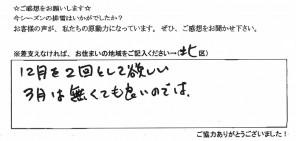 ☆ご感想をお願いします☆
今シーズンの排雪はいかがでしたか?
お客様の声が、私たちの原動力になっています。ぜひ、ご感想をお聞かせ下さい。
※差支えなければ、お住まいの地域をご記入ください→(北区)
12月を2回として欲しい
3月は無くても良いのでは、
ご協力ありがとうございました!